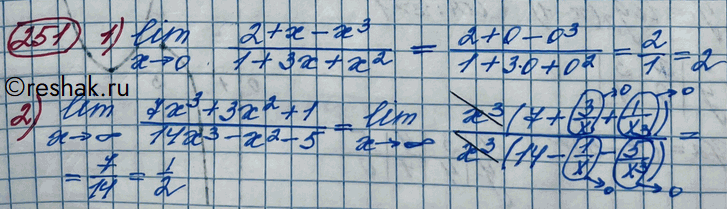 251 1) lim x→0 (2+x−x³)/(1+3x+x²) = (2+0−0³)/(1+3·0+0²) = 2/1 = 2
©reshak.ru
2) lim x→∞ (7x³+3x²+1)/(14x³−x²−5) = lim x→∞ (x³(7+3/x+1/x³))/(x³(14−1/x−5/x³)) = →0 →0 →0 →0
= 7/14 = 1/2